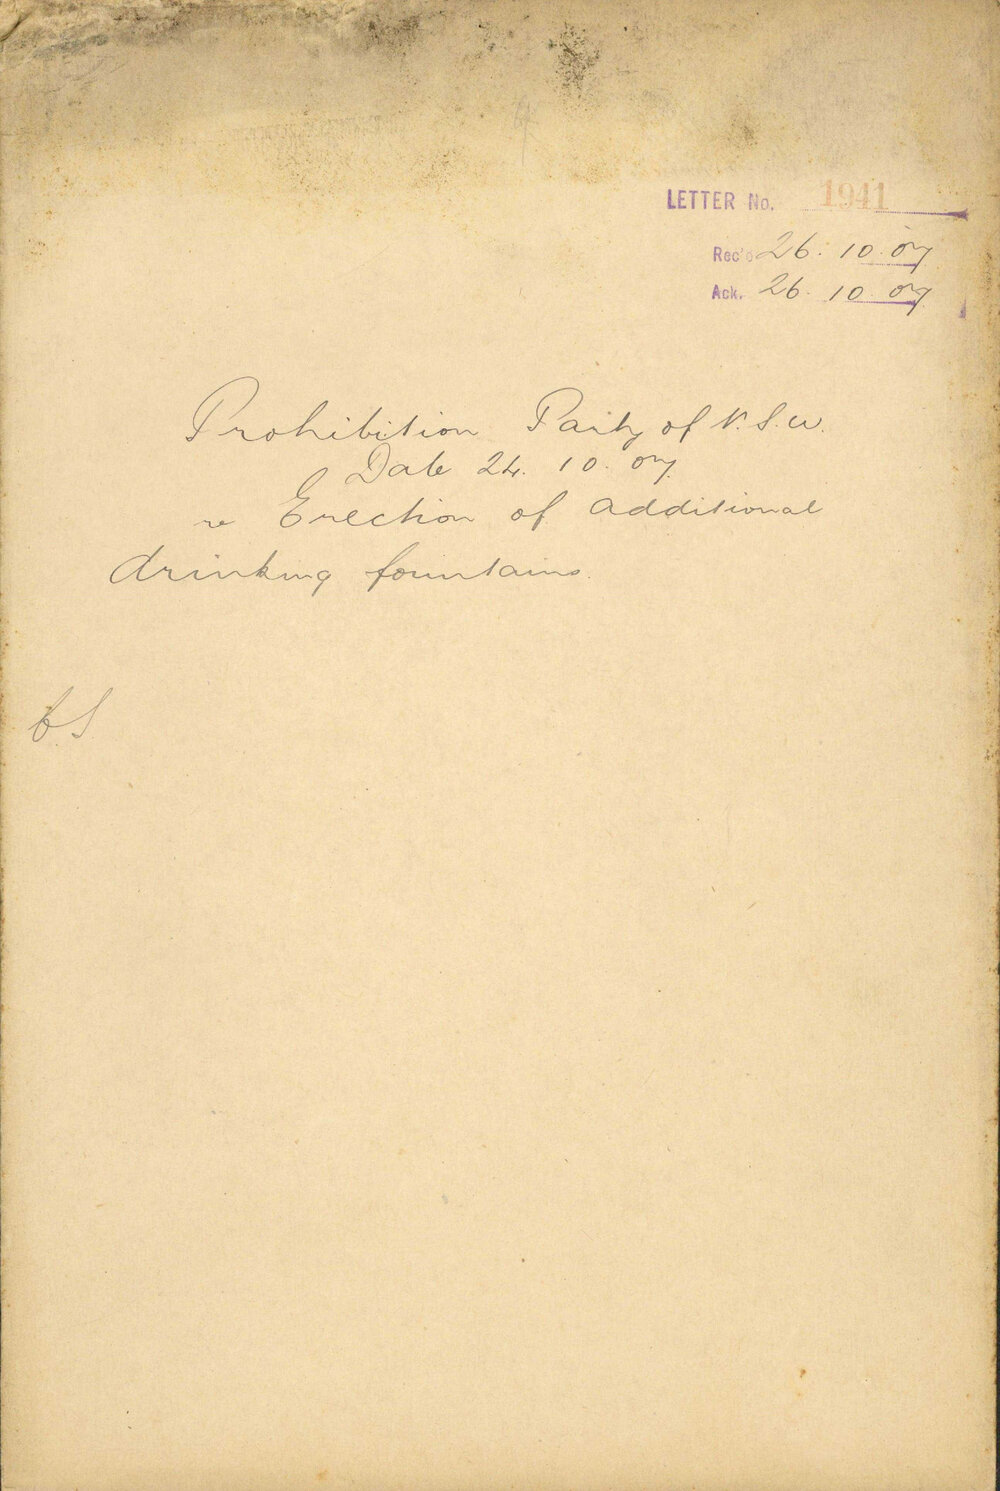 LETTER No. 1941
Rec'd 26. 10. 07
Ack. 26. 10. 07
Prohibition Party of N.S.W.
Date 24. 10. 07
re Erection of additional
drinking fountains.